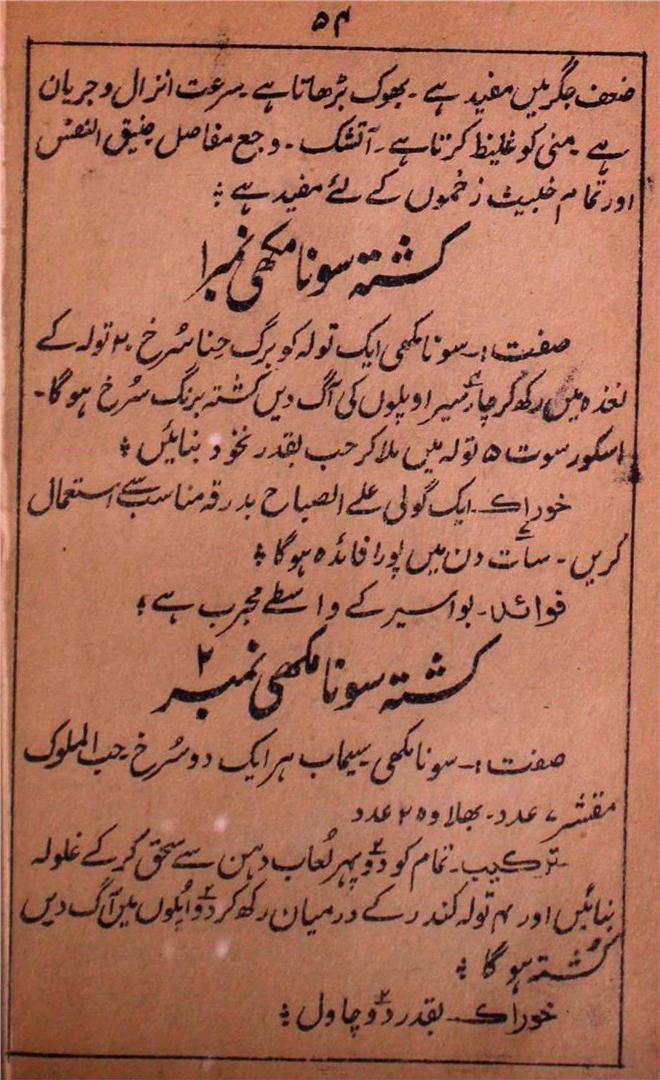 ۵۴
ضعف جگر میں مفید ہے۔ بھوک بڑھاتا ہے۔ سرعت انزال و جریان
ہے۔ منی کو غلیظ کرتا ہے۔ آتشک۔ وجع مفاصل ضیق النفس
اور تمام خبیث زخموں کے لئے مفید ہے ؞
کشتہ سونا مکھی نمبر ۱
صفت :۔ سونا مکھی ایک تولہ کو برگ حنا سُرخ ۲۰ تولہ کے
نغذہ میں رکھ کر چار سیر اوپلوں کی آگ دیں کشتہ برنگ سُرخ ہوگا۔
اسکو رسوت ۵ تولہ میں ملا کر حب بقدر نخود بنائیں ؞
خوراک۔ ایک گولی علے الصباح بدرقہ مناسب سے استعمال
کریں۔ سات دن میں پورا فائدہ ہوگا ؞
فوائد۔ بواسیر کے واسطے مجرب ہے ؞
کشتہ سونا مکھی نمبر ۲
صفت :۔ سونا مکھی۔ سیماب ہر ایک دو سُرخ۔ حب الملوک
مقشر ۷ عدد۔ بھلاوہ ۲۵ عدد
ترکیب۔ تمام کو دو ۲ پہر لُعاب دہن سے سحق کر کے غلولہ
بنائیں اور ۴ تولہ کندر کے درمیان رکھ کر دو ۲ اُپلوں میں آگ دیں
کُشتہ ہوگا ؞
خوراک۔ بقدر دو ۲ چاول ؞